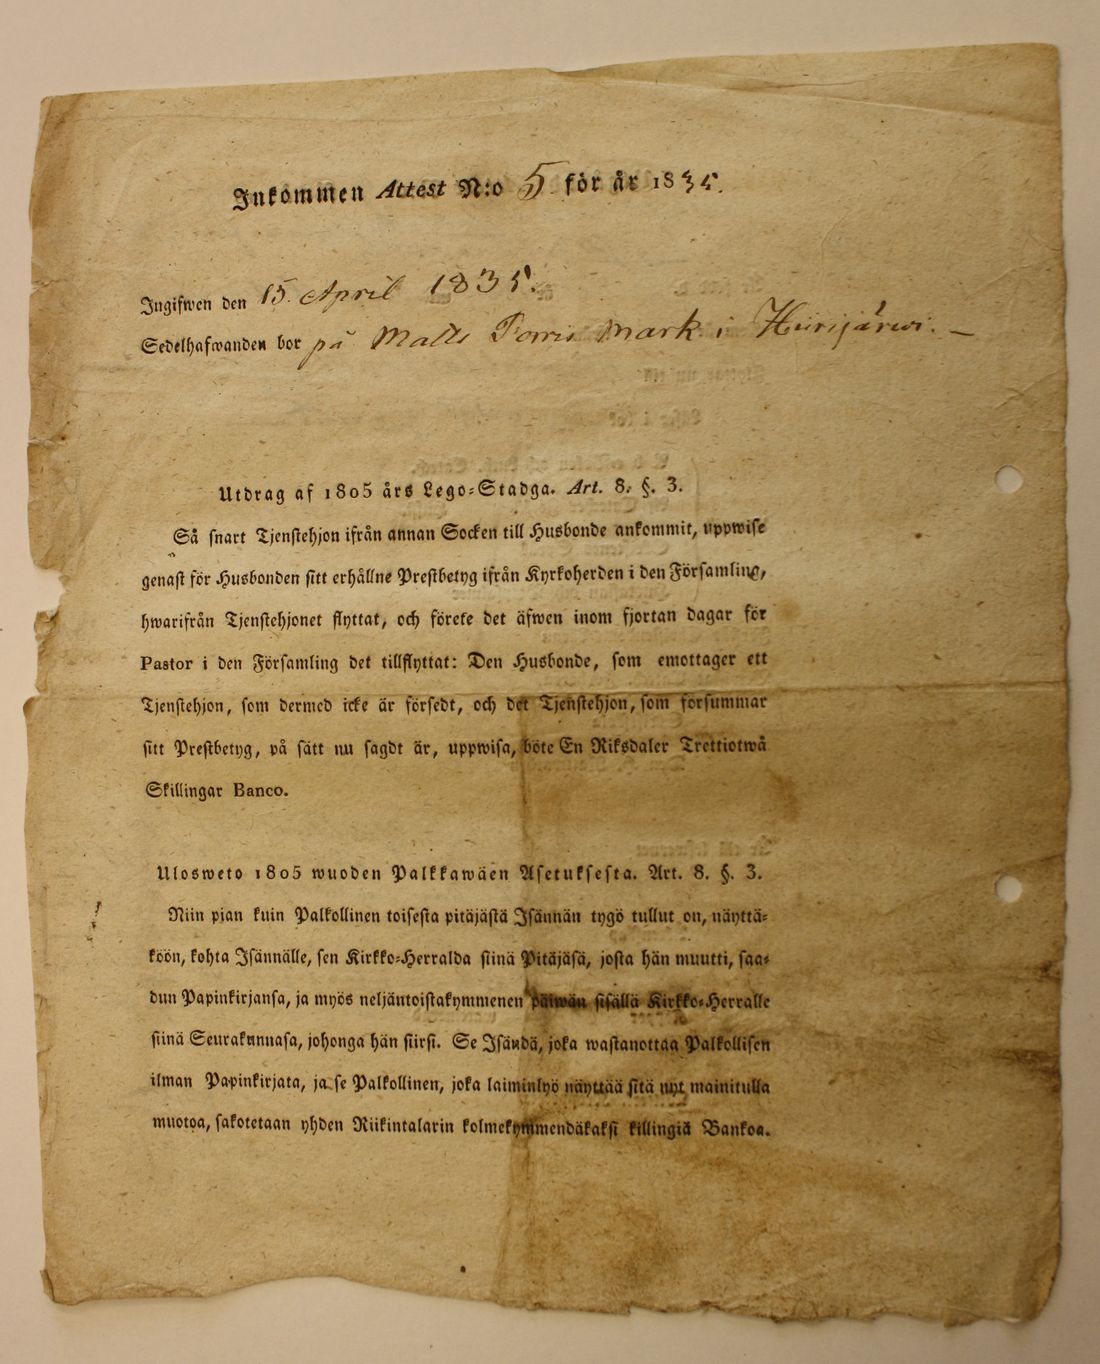 Inkommen Attest N:o 5 för år 1835.
Ingifwen den 15. April 1835.
Sedelhafwanden bor på Matts Mark i
Utdrag af 1805 års Lego-Stadga. Art. 8. §. 3.
Så snart Tjenstehjon ifrån annan Socken till Husbonde ankommit, uppwise
genast för Husbonden sitt erhållne Prestbetyg ifrån Kyrkoherden i den Församling,
hwarifrån Tjenstehjonet flyttat, och förete det äfwen inom fjortan dagar för
Pastor i den Församling det tillflyttat: Den Husbonde, som emottager ett
Tjenstehjon, som dermed icke är försedt, och det Tjenstehjon, som försummar
sitt Prestbetyg, på sätt nu sagdt är, uppwisa, böte En Riksdaler Trettiotwå
Skillingar Banco.
Ulosweto 1805 wuoden Palkkawäen Asetuksesta. Art. 8. §. 3.
Niin pian kuin Palkollinen toisesta pitäjästä Isännän tygö tullut on, näyttä-
köön, kohta Isännälle, sen Kirkko-Herralda siinä Pitäjäsä, josta hän muutti, saa-
dun Papinkirjansa, ja myös neljäntoistakymmenen päiwän sisällä Kirkko-Herralle
siinä Seurakunnasa, johonga hän siirsi. Se Isändä, joka wastanottaa Palkollisen
ilman Papinkirjata, ja se Palkollinen, joka laiminlyö näyttää sitä nyt mainitulla
muotoa, sakotetaan yhden Riikintalarin kolmekymmendäkaksi killingiä Bankoa.